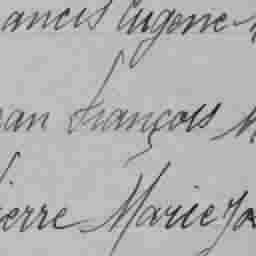 ancis Eugene
ean François M
ierre Marie Jos